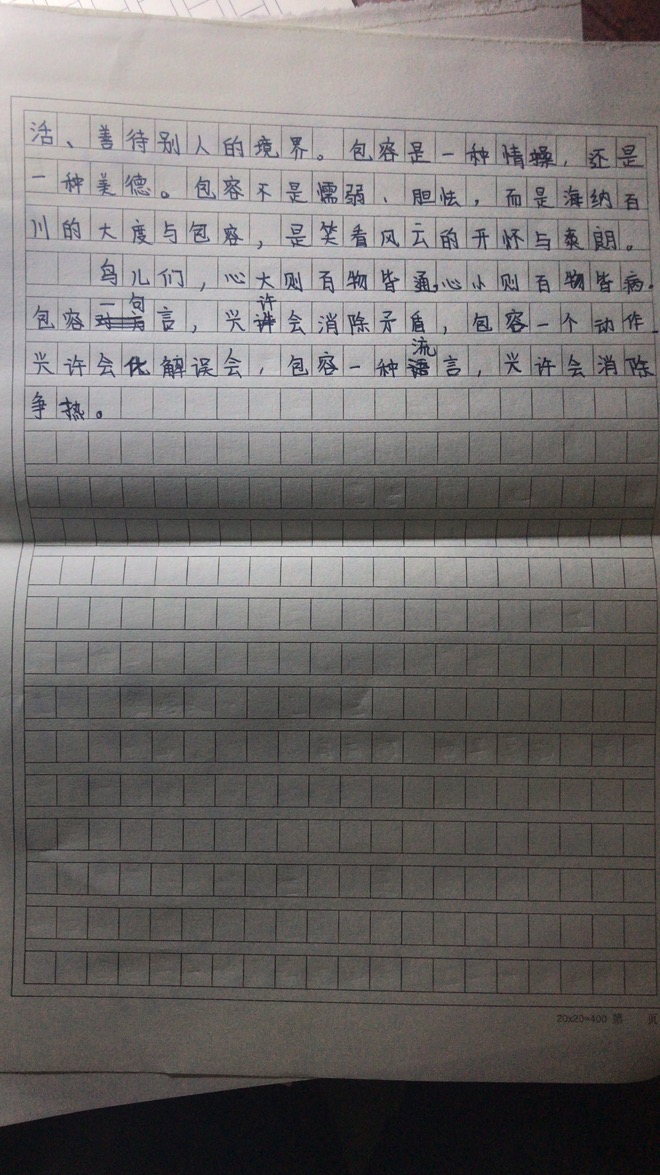 活、善待别人的境界。包容是一种情操，还是
一种美德。包容不是懦弱、胆怯，而是海纳百
川的大度与包容，是笑看风云的开怀与爽朗。
鸟儿们，心大则百物皆通，心小则百物皆病。
包容一句言，兴许会消除矛盾，包容一个动作
兴许会化解误会，包容一种流言，兴许会消除
争热。
20x20=400 第 页